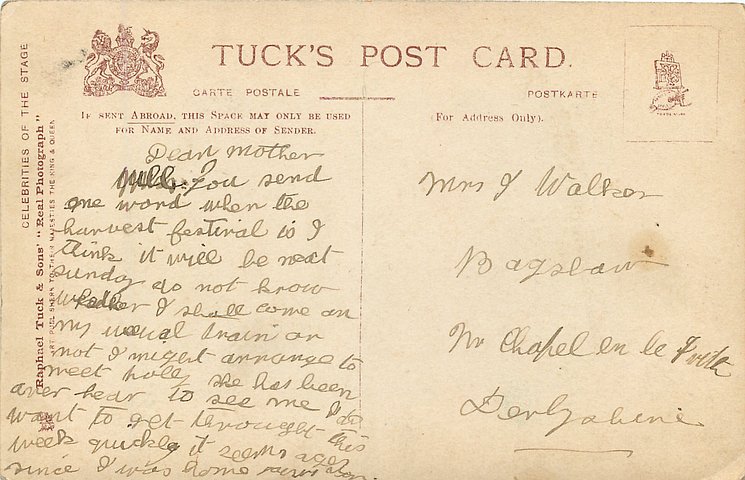 TUCK'S POST CARD.
CARTE POSTALE
POSTKARTE
IF SENT ABROAD, THIS SPACE MAY ONLY BE USED
FOR NAME AND ADDRESS OF SENDER.
(For Address Only).
CELEBRITIES OF THE STAGE
Raphael Tuck & Sons' "Real Photograph"
ART PUBLISHERS TO THEIR MAJESTIES THE KING & QUEEN
Dear Mother
Will you send
me word when the
harvest festival is I
think it will be next
sunday do not know
whether I shall come on
my usual train or
not I might arrange to
meet holly she has been
over hear to see me I do
want to get throught this
week quickly it seems ages
since I was home
Mrs J Walker
Bagshaw
Nr Chapel en le Frith
Derbyshire